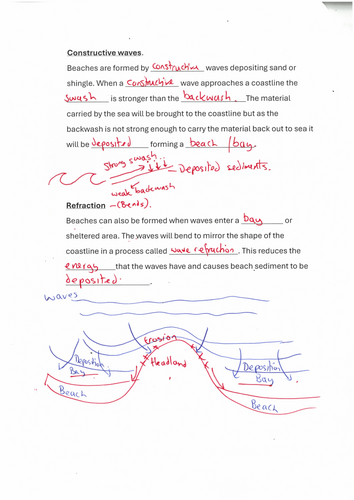 Constructive waves.
Beaches are formed by constructive waves depositing sand or
shingle. When a constructive wave approaches a coastline the
swash is stronger than the backwash. The material
carried by the sea will be brought to the coastline but as the
backwash is not strong enough to carry the material back out to sea it
will be deposited forming a beach / bay.
strong swash...
Deposited sediments.
weak backwash
Refraction - (Bends).
Beaches can also be formed when waves enter a bay or
sheltered area. The waves will bend to mirror the shape of the
coastline in a process called wave refraction. This reduces the
energy that the waves have and causes beach sediment to be
deposited.
waves
Erosion
Deposition Headland Deposition
Bay Bay
Beach Beach